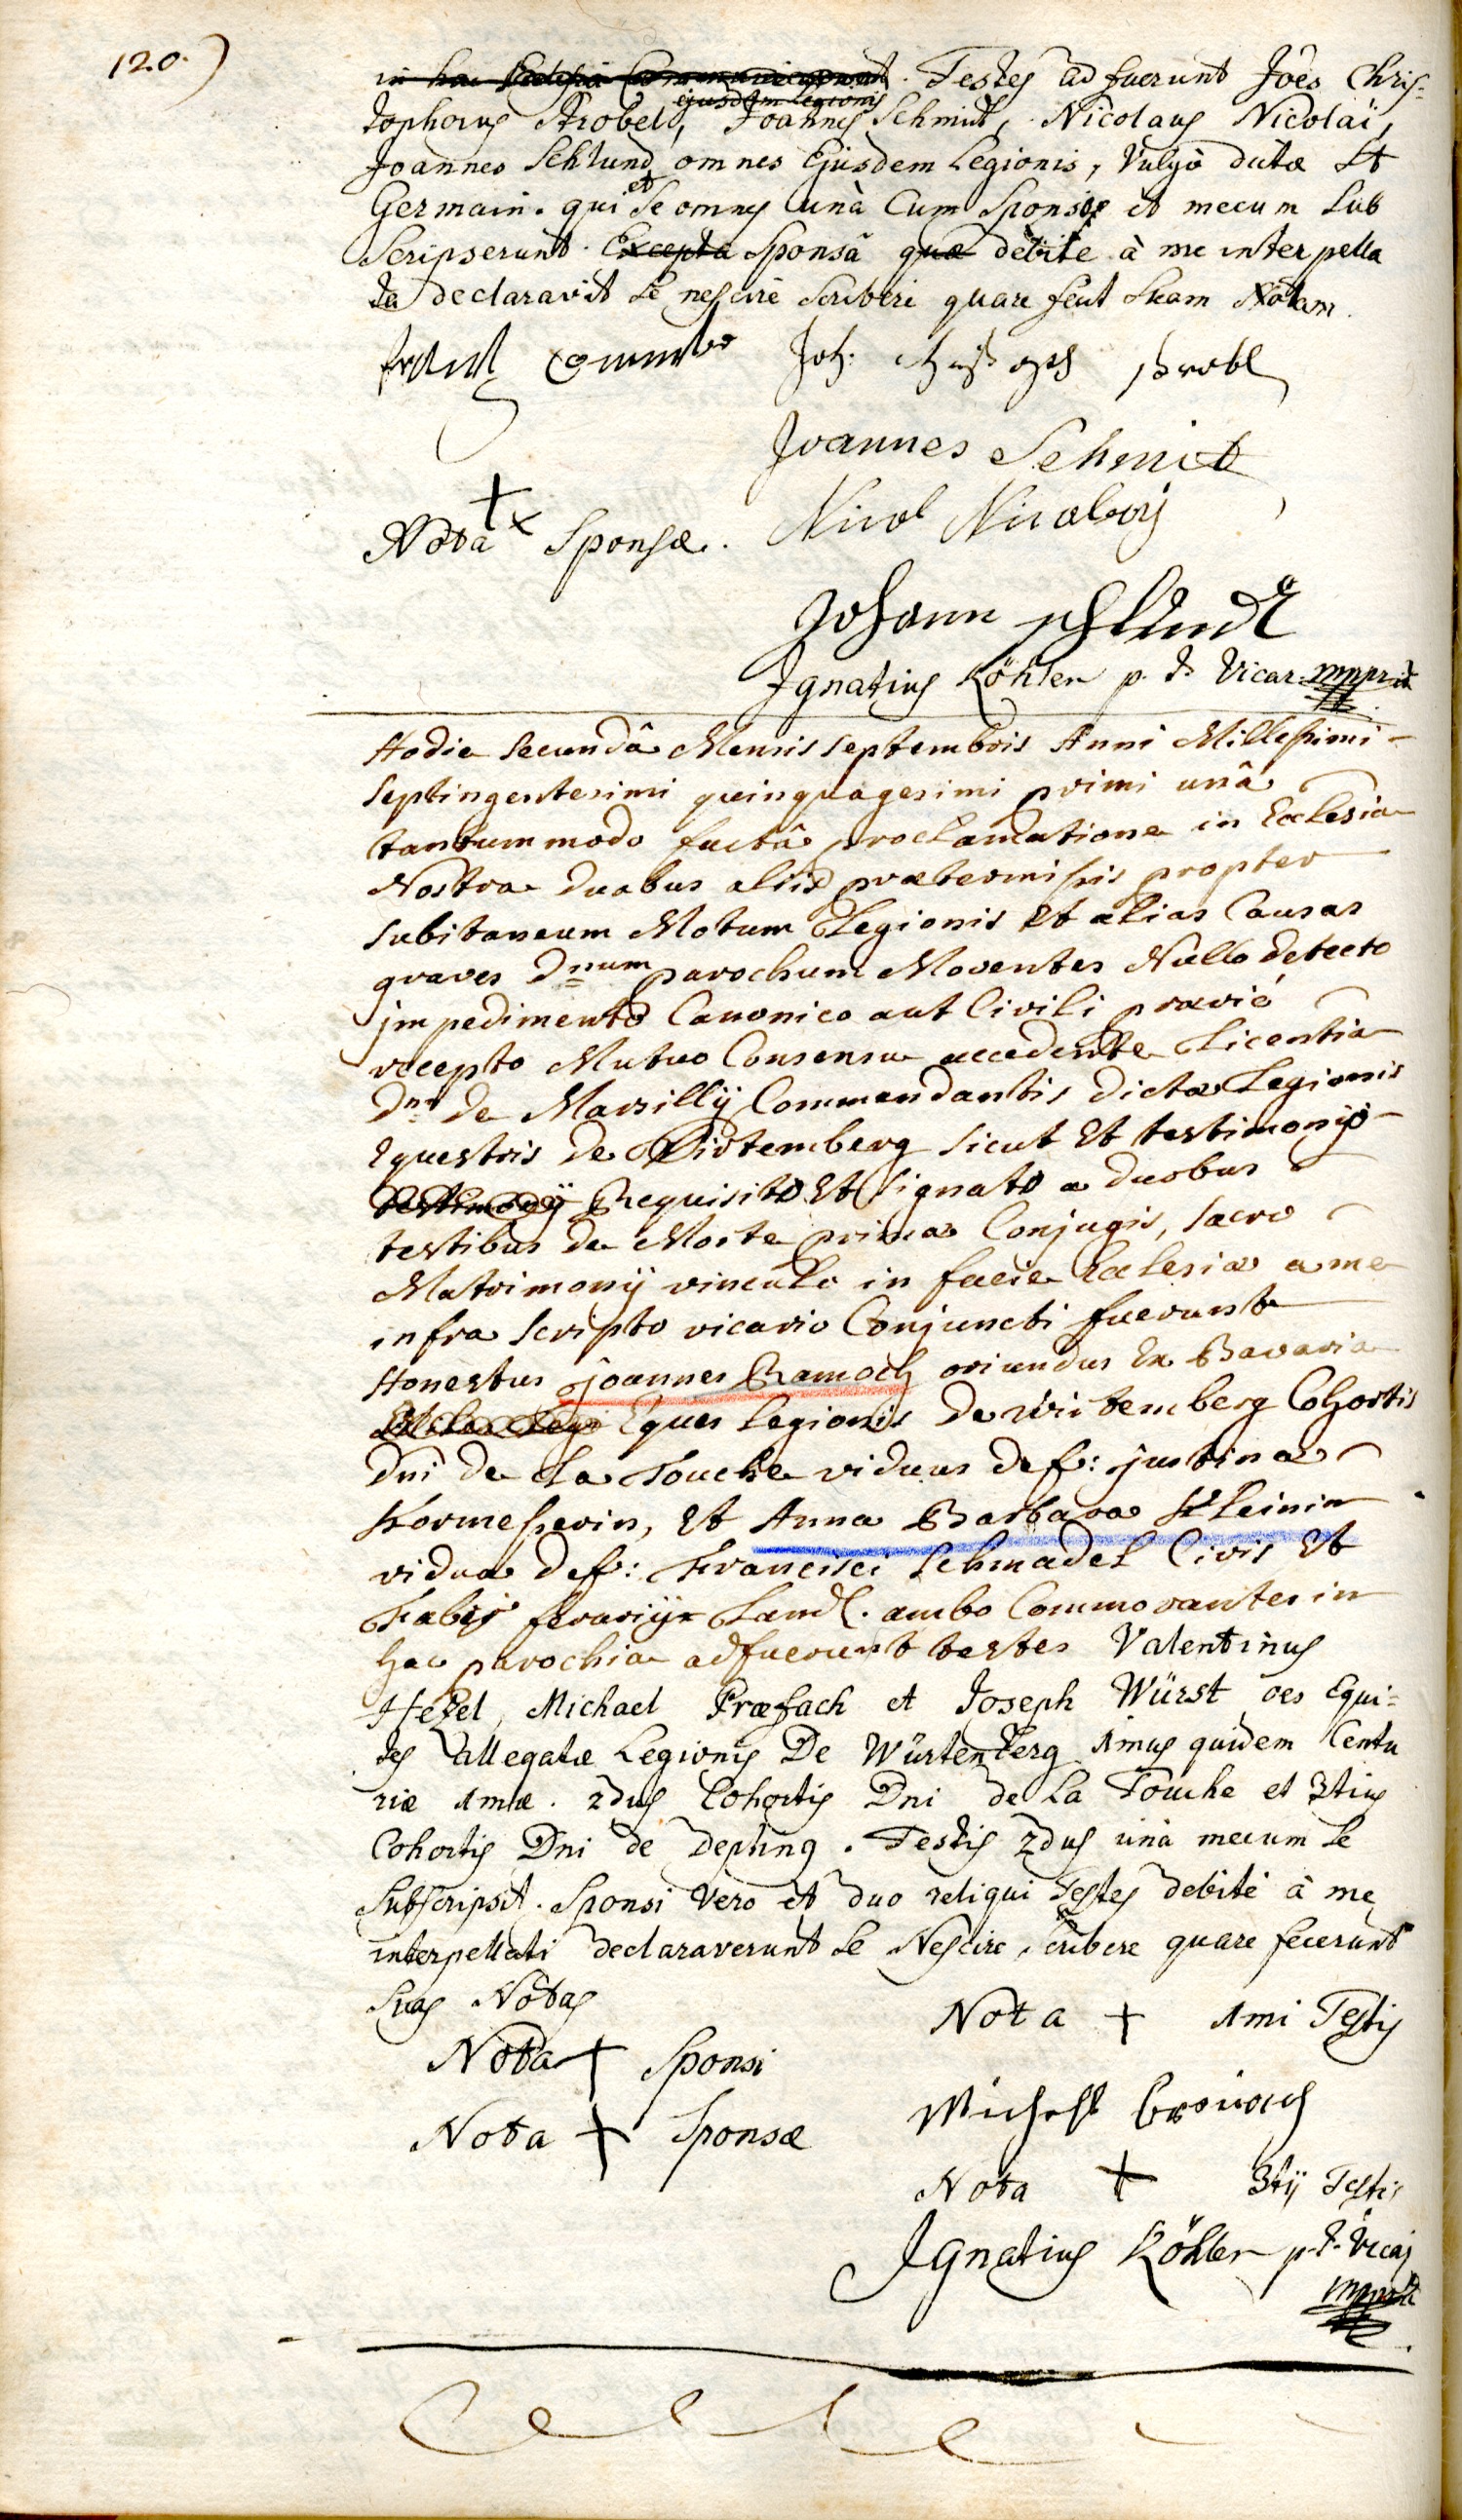 120.)
in hac Ecclesiâ . Testes ad fuerunt Joês Chris-
ejusdem Legionis
tophorus Strobel, Joannes Schmit, Nicolaus Nicolai,
Joannes Schlund omnes Ejusdem Legionis, Vulgò dictæ St
et
Germain. qui se omnes unà Cum Sponso et mecum sub
Scripserunt. Excepta Sponsâ quæ debite à me interpella
ta declaravit se nescire scribere quare fecit suam Notam.
Joh: Christoph Strobl
Joannes Schmit
Nota + Sponsæ.
Nicol Nicolay
Johann Schlundt
Ignatius Köhler p. t. Vicar. mppriâ
Hodie secundâ Mensis septembris Anni Millesimi
septingentesimi quinquagesimi primi unâ
tantummodo factâ proclamatione in Ecclesia
Nostra duabus aliis prætermissis propter
subitaneum Motum Legionis Et alias Causas
graves Dnum parochum Moventes Nullo detecto
jmpedimento Canonico aut Civili prævie
recepto Mutuo Consensu accedente Licentia
Dni de Marsillÿ Commendantis dictæ Legionis
Equestris de Wirtemberg sicut Et testimonyo
testimonÿ Requisito Et signato a duobus
testibus de Morte primæ Conjugis, sacro
Matrimonÿ vinculo in facie Ecclesiæ a me
infra scripto vicario Conjuncti fuerunt
Honestus joannes Ramoch oriundus Ex Bavaria
Eques Legionis de Wirtemberg Cohortis
Dni de La Touche viduus def: justinæ
Kormesserin, Et Anna Barbara Kleinin
vidua def: Francisci Schmadel Civis Et
Fabri ferarÿ Land. ambo Commorantes in
hac parochia adfuerunt testes Valentinus
Hezel, Michael Præfach et Joseph Würst oes Equi=
tes allegatæ Legionis De Würtenberg 1mus quidem Centu
riæ 1mæ. 2dus Cohortis Dni de La Touche et 3tius
Cohortis Dni de Dephing. Testis 2dus unà mecum se
subscripsit. Sponsi vero et duo reliqui Testes debitè à me
interpellati declaraverunt se Nescire scribere quare fecerunt
suas Notas
Nota + 1mi Testis
Nota + Sponsi
Nota + Sponsæ
Nota + 3tÿ Testis
Ignatius Köhler p. t. Vicar
mppriâ